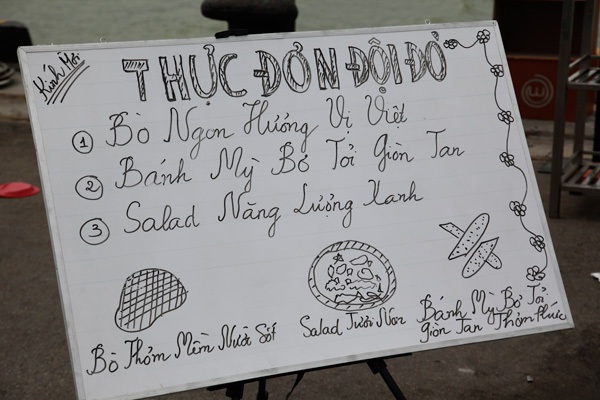 Kính Mời
THỰC ĐƠN ĐỘI ĐỎ
1 Bò Ngon Hương Vị Việt
2 Bánh Mỳ Bơ Tỏi Giòn Tan
3 Salad Năng Lượng Xanh
Bò Thơm Mềm Nước Sốt
Salad Tươi Non
Bánh Mỳ Bơ Tỏi
Giòn Tan Thơm Phức